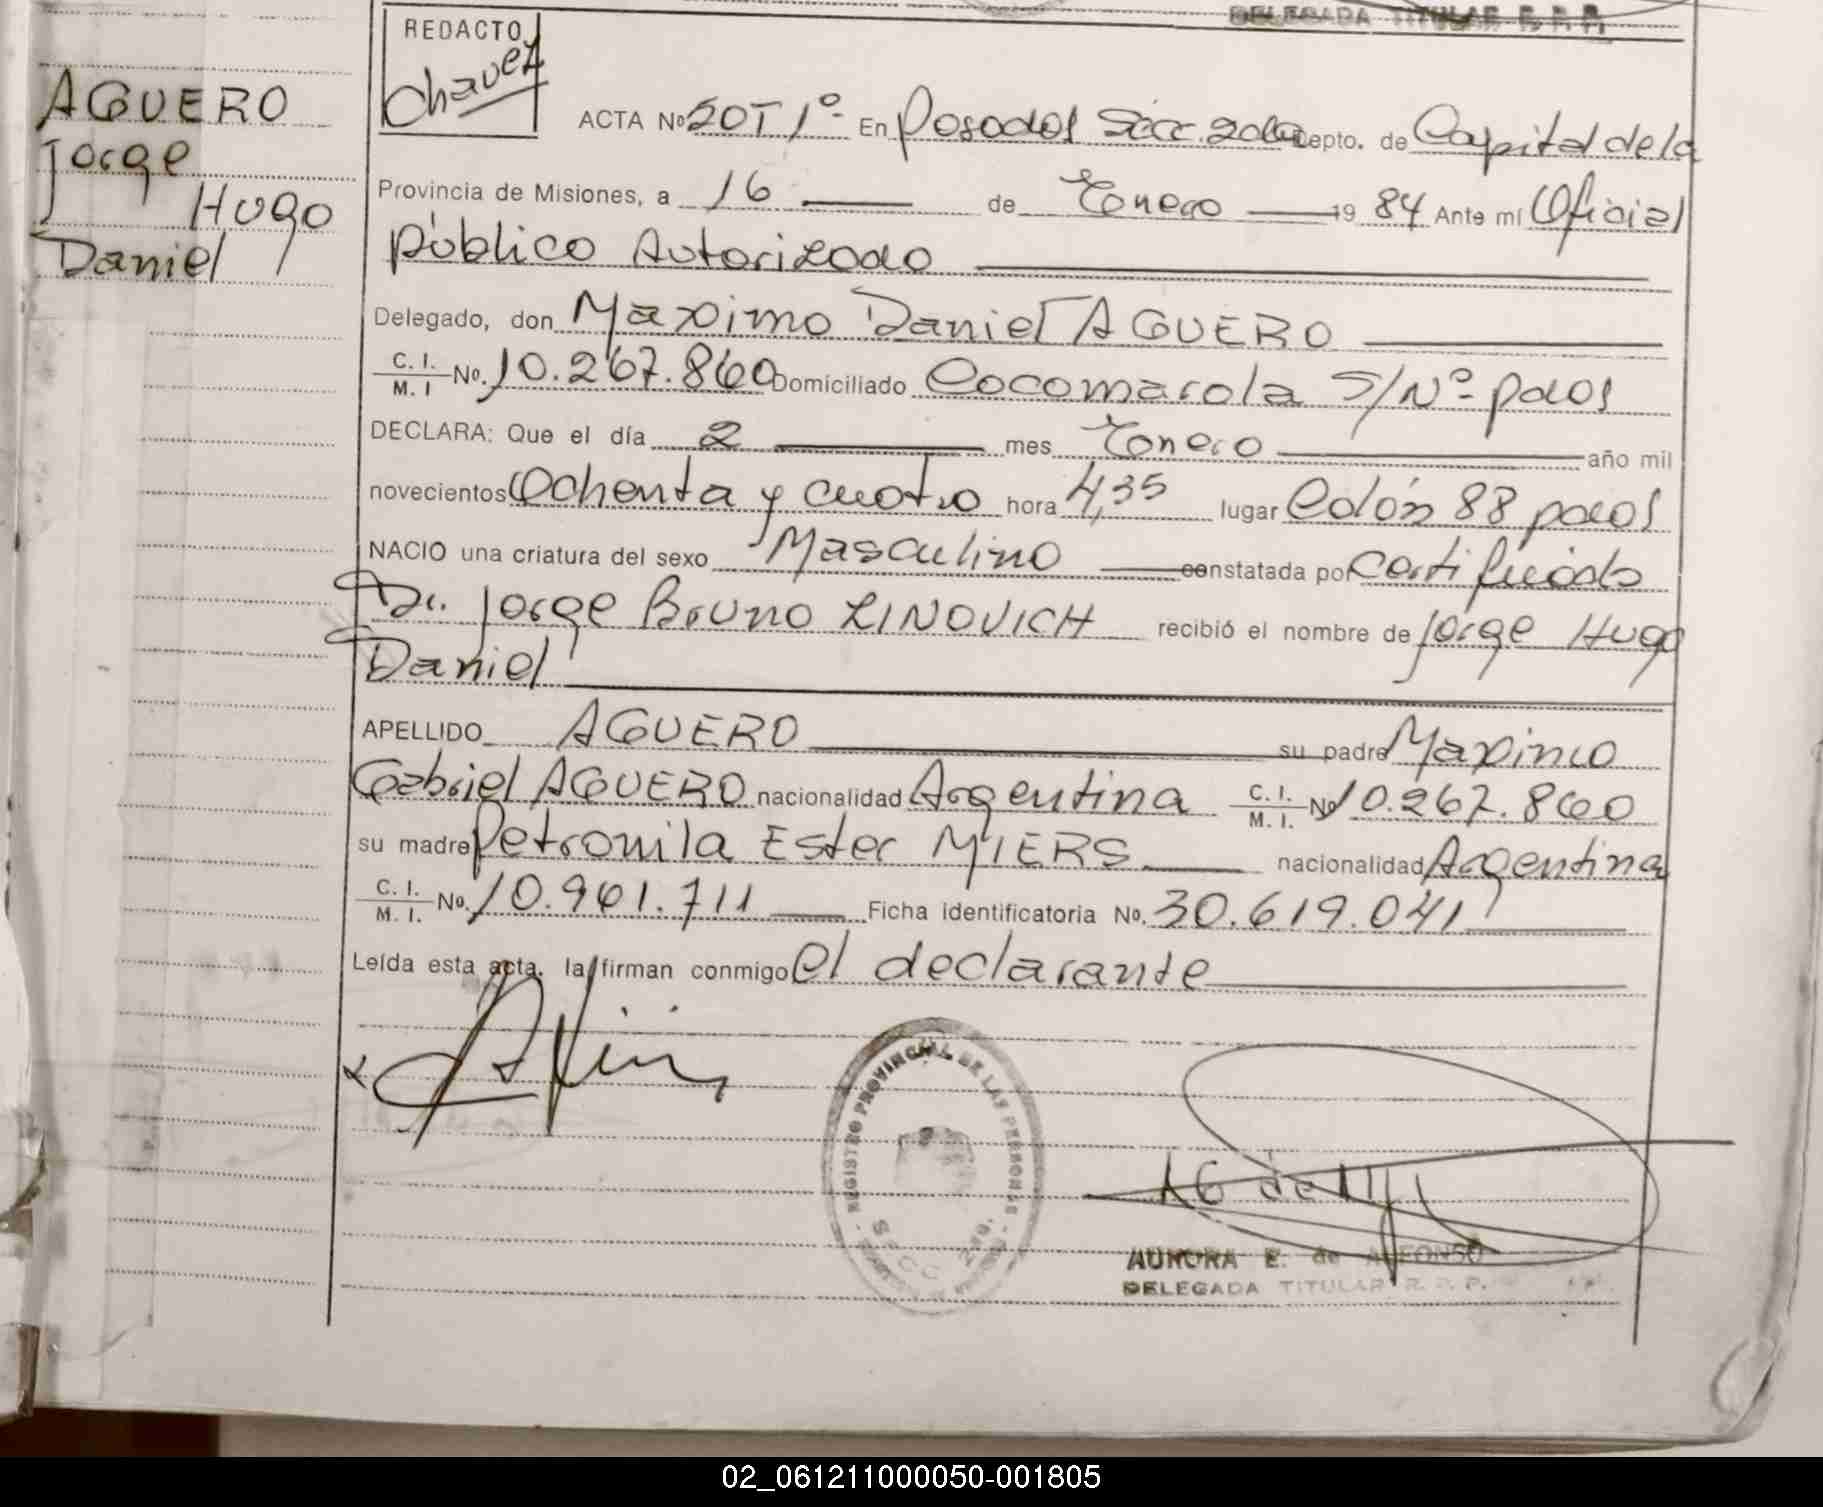 DELEGADA TITULAR R. P. P.
REDACTO
Chavez
AGUERO
Jorge
Hugo
Daniel
ACTA Nº 50T1º En Posadas Secc. 2da Depto. de Capital de la
Provincia de Misiones, a 16 de Enero 19 84 Ante mí Oficial
público Autorizado
Delegado, don Maximo Daniel AGUERO
C. I. M. I No. 10.267.860 Domiciliado Cocomarola S/Nº pdas
DECLARA: Que el día 2 mes Enero año mil
novecientos Ochenta y cuatro hora 4,35 lugar Colón 88 pdas
NACIO una criatura del sexo Masculino constatada por Certificado
Dr. Jorge Bruno LINOVICH recibió el nombre de Jorge Hugo
Daniel
APELLIDO AGUERO su padre Maximo
Gabriel AGUERO nacionalidad Argentina C. I. M. I. Nº 10.267.860
su madre Petronila Ester MIERS nacionalidad Argentina
C. I. M. I. No. 10.961.711 Ficha identificatoria No. 30.619.041
Leída esta acta, la firman conmigo el declarante
REGISTRO PROVINCIAL DE LAS PERSONAS
SECC 2da.
AURORA E. de ALFONSO
DELEGADA TITULAR R. P. P.
02_061211000050-001805